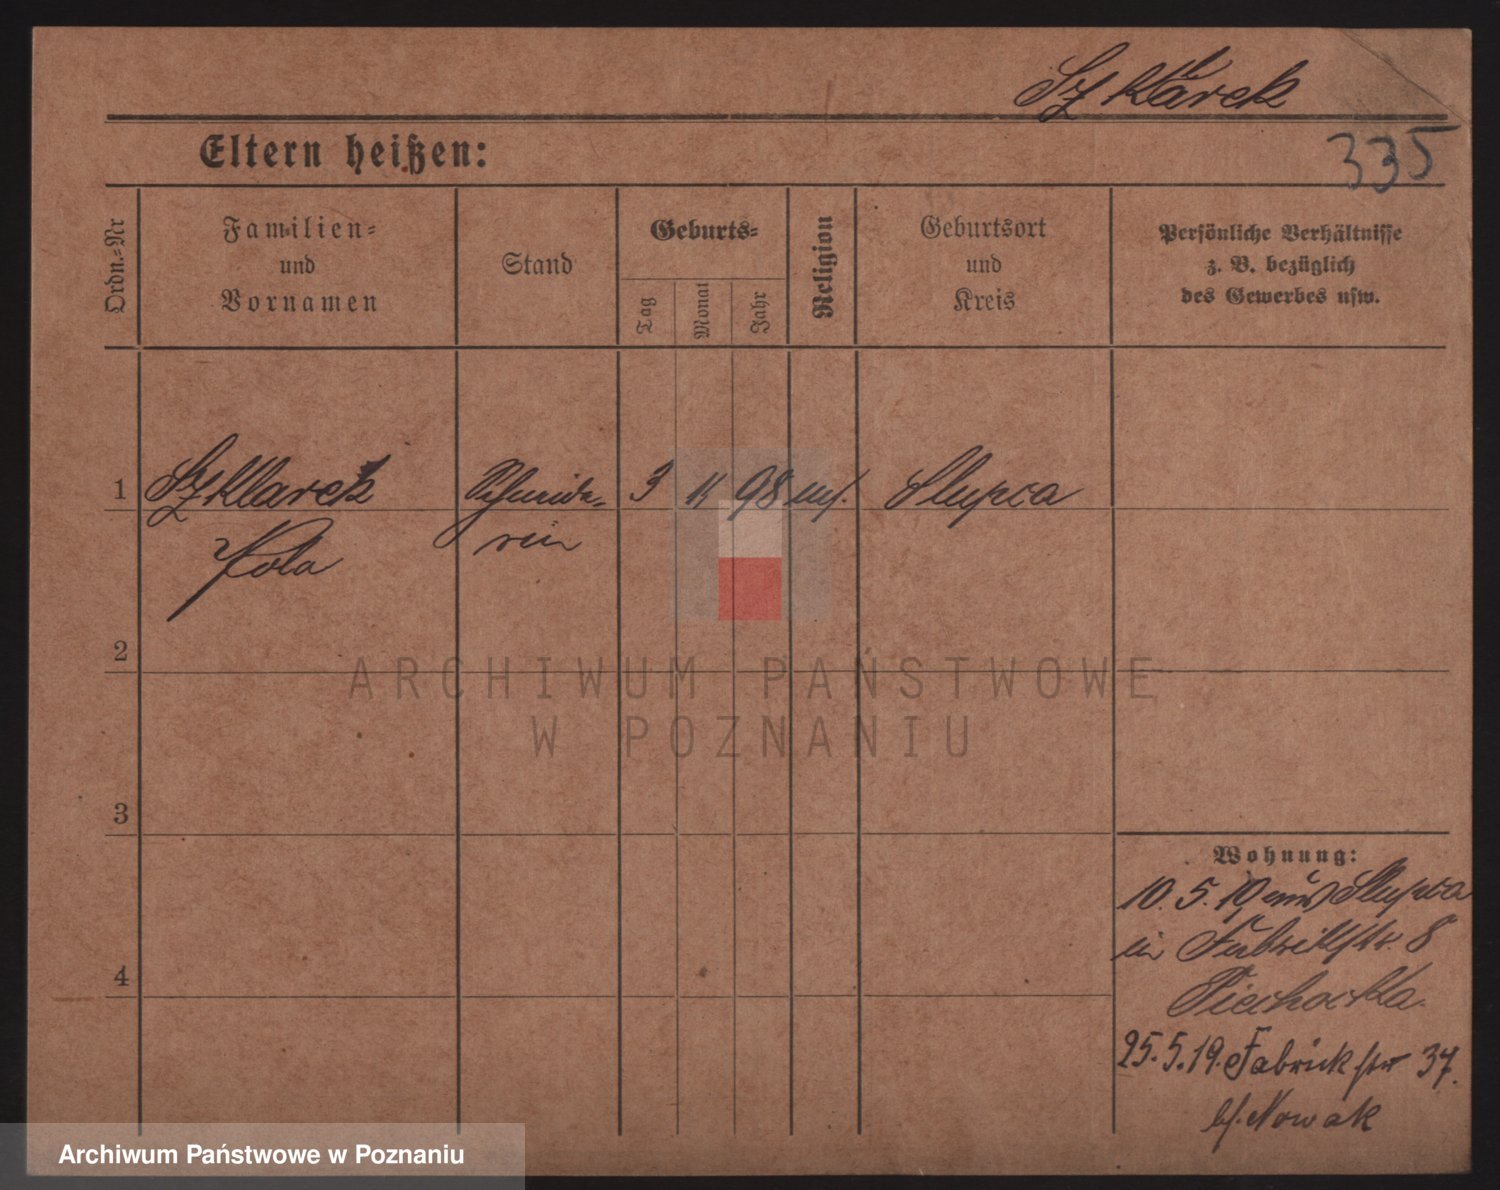 Szklarek
335
Eltern heißen:
Ordn.-Nr
Familien-
und
Vornamen
Stand
Geburts-
Tag
Monat
Jahr
Religion
Geburtsort
und
Kreis
Persönliche Verhältnisse
z. B. bezüglich
des Gewerbes usw.
1 Szklarek Schneide- 3 11 98 Slupca
rin
2
3
4
Wohnung:
10. 5. 19 aus Slupca
in Fabrikstr. 8
Piechocka.
25. 5. 19. Fabrickstr 37.
bf. Nowak
ARCHIWUM PAŃSTWOWE
W POZNANIU
Archiwum Państwowe w Poznaniu